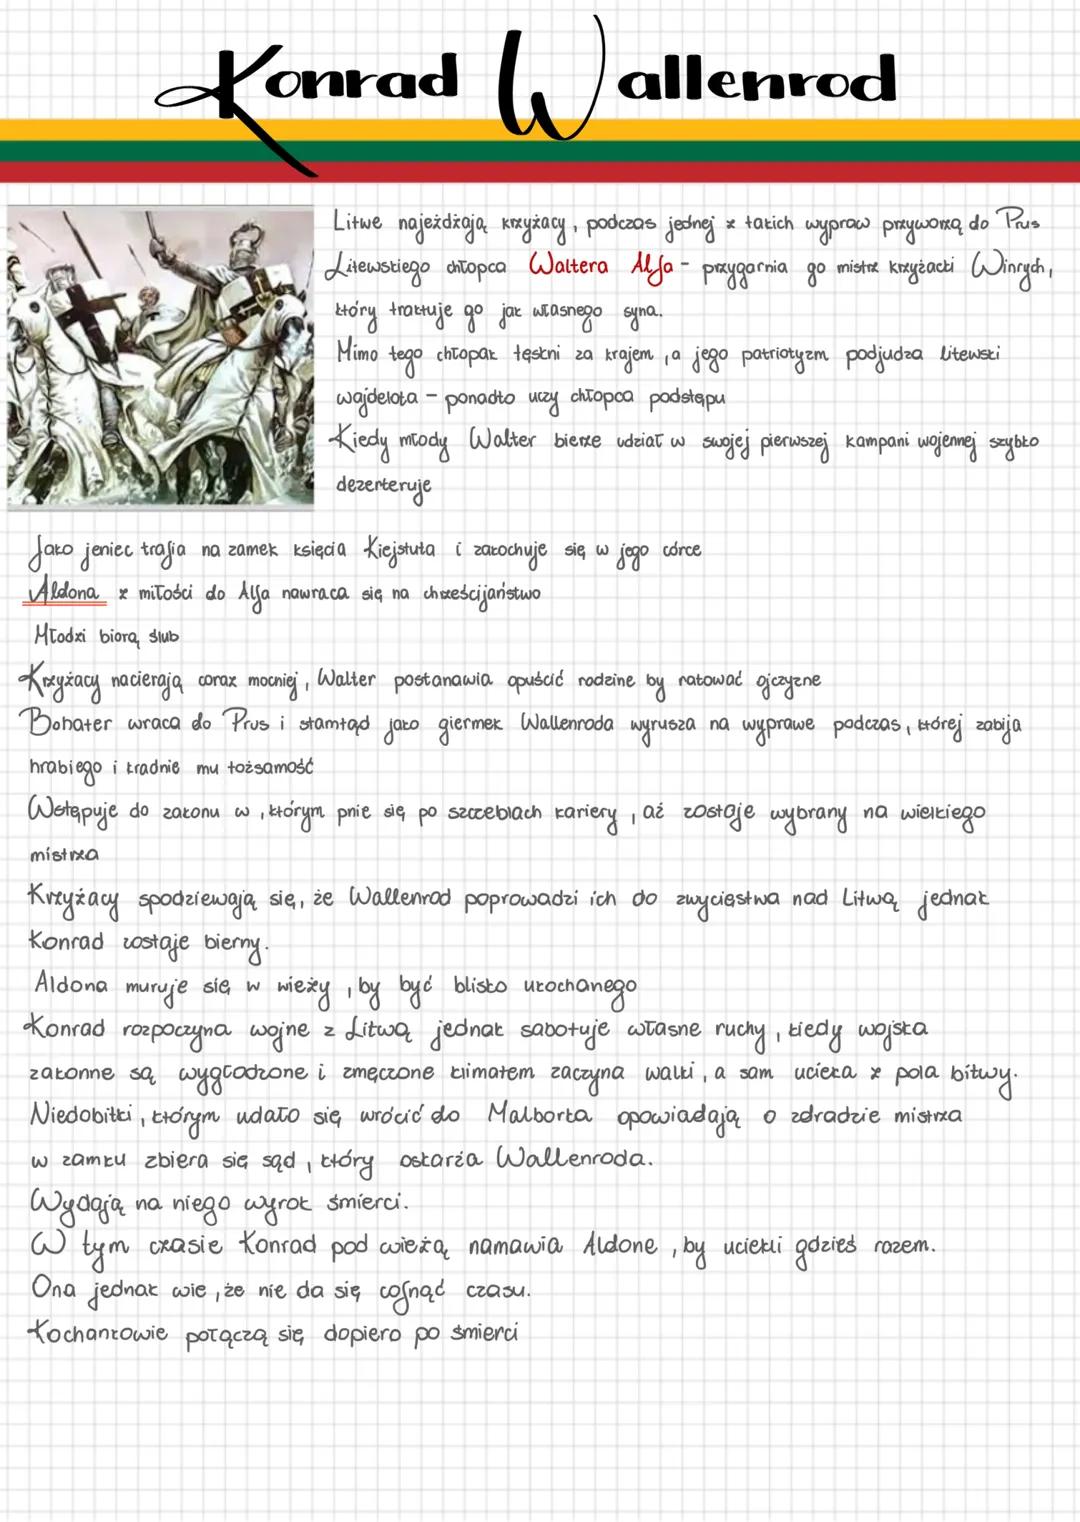 Konrad Wallenrod
Litwe najeżdżają krzyżacy, podczas jednej z takich wypraw przyworzą do Prus
Litewskiego chłopca Waltera Alfa - przygarnia go mistrz krzyżacki Winrych,
który traktuje go jak własnego syna.
Mimo tego chłopak tęskni za krajem, a jego patriotyzm podjudza litewski
wajdelota - ponadto uczy chłopca podstępu
Kiedy młody Walter bierze udział w swojej pierwszej kampani wojennej szybko
dezerteruje
Jako jeniec trafia na zamek księcia Kiejstuta i zakochuje się w jego córce
Aldona z miłości do Alfa nawraca się na chrześcijaństwo
Młodzi biorą ślub
Krzyżacy nacierają coraz mocniej, Walter postanawia opuścić rodzine by ratować ojczyzne
Bohater wraca do Prus i stamtąd jako giermek Wallenroda wyrusza na wyprawe podczas, której zabija
hrabiego i kradnie mu tożsamość
Wstępuje do zakonu w, którym pnie się po szczeblach kariery, aż zostaje wybrany na wielkiego
mistrza
Krzyżacy spodziewają się, że Wallenrod poprowadzi ich do zwycięstwa nad Litwą jednak
Konrad zostaje bierny.
Aldona muruje się w wieży, by być blisko ukochanego
Konrad rozpoczyna wojne z Litwą jednak sabotuje własne ruchy, kiedy wojska
zakonne są wygłodzone i zmęczone klimatem zaczyna walki, a sam ucieka z pola bitwy.
Niedobitki, którym udało się wrócić do Malborka opowiadają o zdradzie mistrza
w zamku zbiera się sąd, który oskarża Wallenroda.
Wydają na niego wyrok śmierci.
W tym czasie Konrad pod wieżą namawia Aldone, by uciekli gdzieś razem.
Ona jednak wie, że nie da się cofnąć czasu.
Kochankowie połączą się dopiero po śmierci